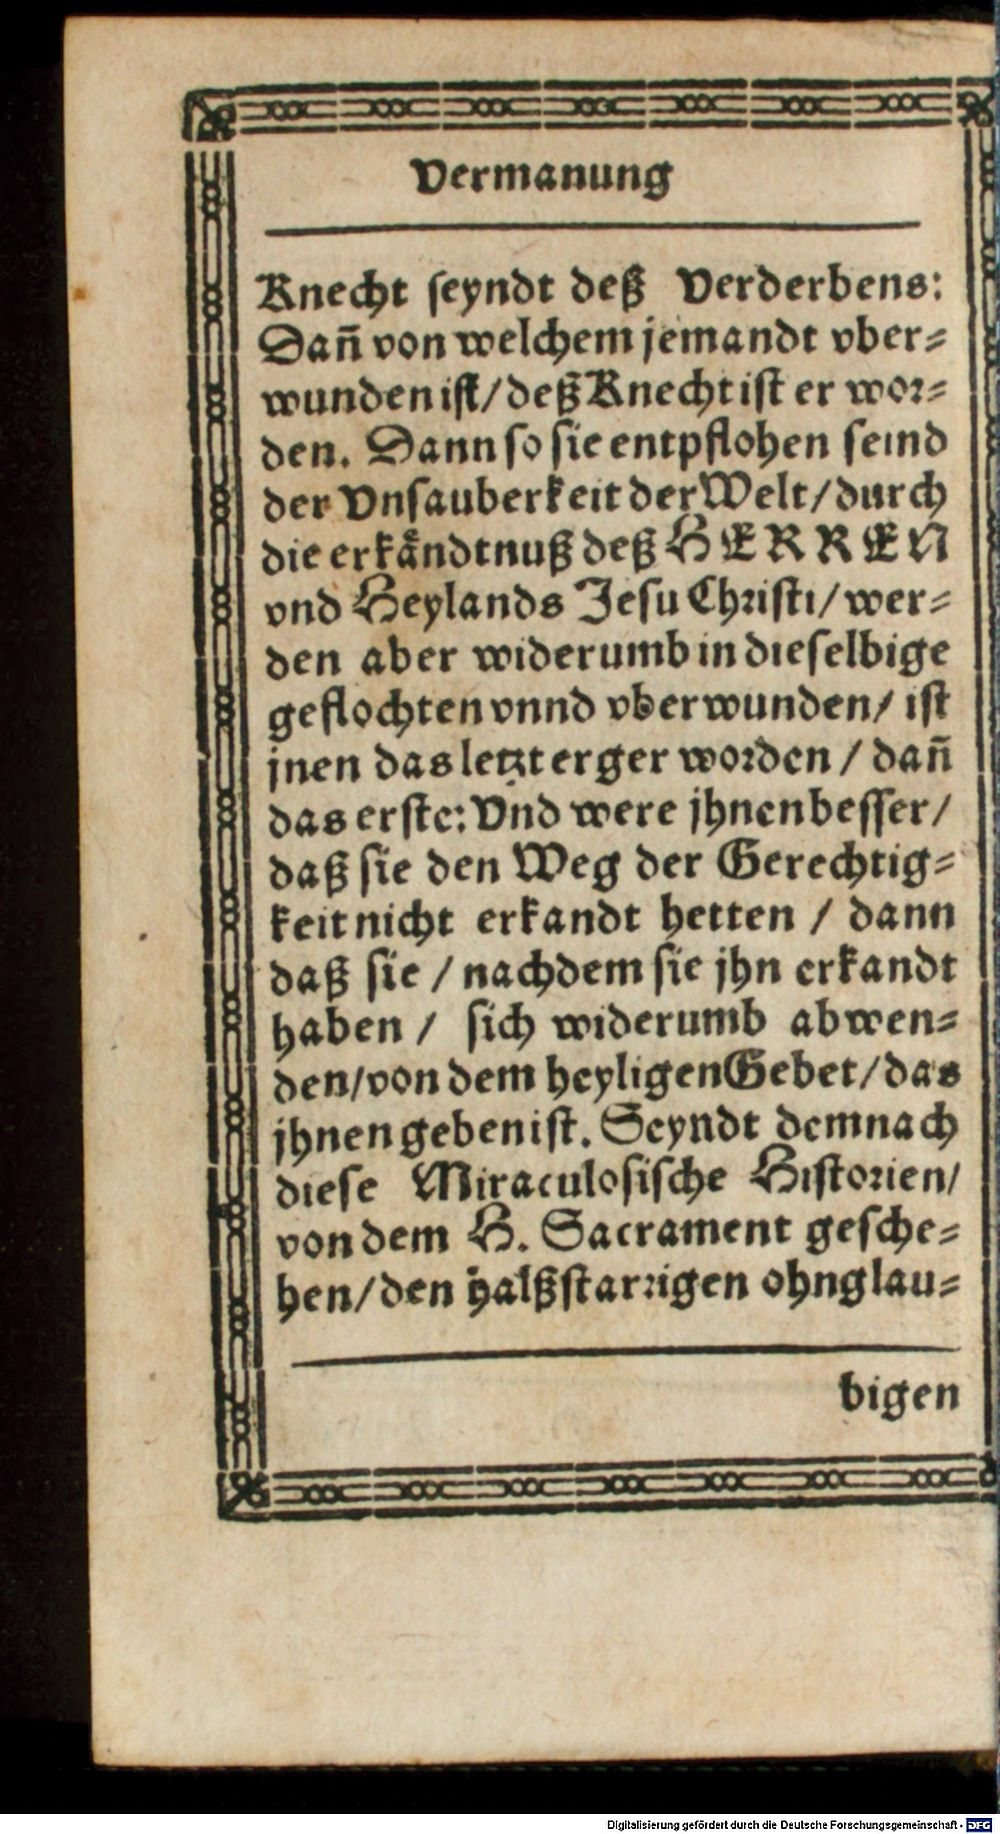 Vermanung
Knecht seyndt deß Verderbens:
Dañ von welchem jemandt vber-
wunden ist/ deß Knecht ist er wor-
den. Dann so sie entpflohen seind
der Vnsauberkeit der Welt/ durch
die erkändtnuß deß HERREN
vnd Heylands Jesu Christi/ wer-
den aber widerumb in dieselbige
geflochten vnnd vberwunden/ ist
jnen das letzt erger worden / dañ
das erste: Vnd were jhnen besser/
daß sie den Weg der Gerechtig-
keit nicht erkandt hetten / dann
daß sie / nachdem sie jhn erkandt
haben / sich widerumb abwen-
den/ von dem heyligen Gebet/ das
jhnen geben ist. Seyndt demnach
diese Miraculosische Historien/
von dem H. Sacrament gesche-
hen/ den halßstarrigen ohnglau-
bigen
Digitalisierung gefördert durch die Deutsche Forschungsgemeinschaft - DFG